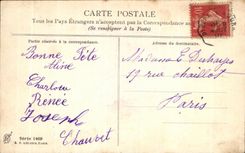 CARTE POSTALE
Tous les Pays Étrangers n'acceptent pas la Correspondance au
(Se renseigner à la Poste)
Partie réservée à la correspondance.
Adresse du destinataire.
Bonne Fête
Aline
Charlou
Renée
Joseph
Chauvet
Madame
19 rue Chaillot
Paris
Série 1469